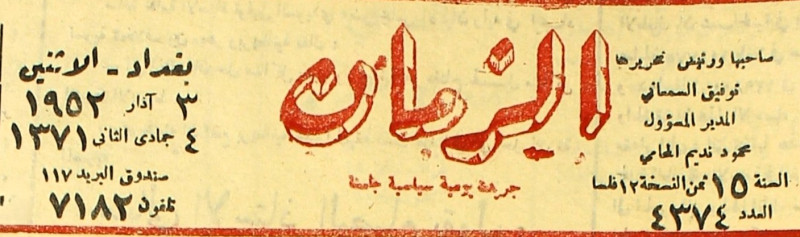 صاحبها ورئيس تحريرها
توفيق السمعاني
المدير المسؤول
محمود نديم المحامي
السنة ١٥ ثمن النسخة ١٢ فلسا
العدد ٤٣٧٤
الزمان
جريدة يومية سياسية جامعة
بغداد - الاثنين
٣ آذار ١٩٥٢
٤ جمادى الثاني ١٣٧١
صندوق البريد ١١٧
تلفون ٧١٨٢